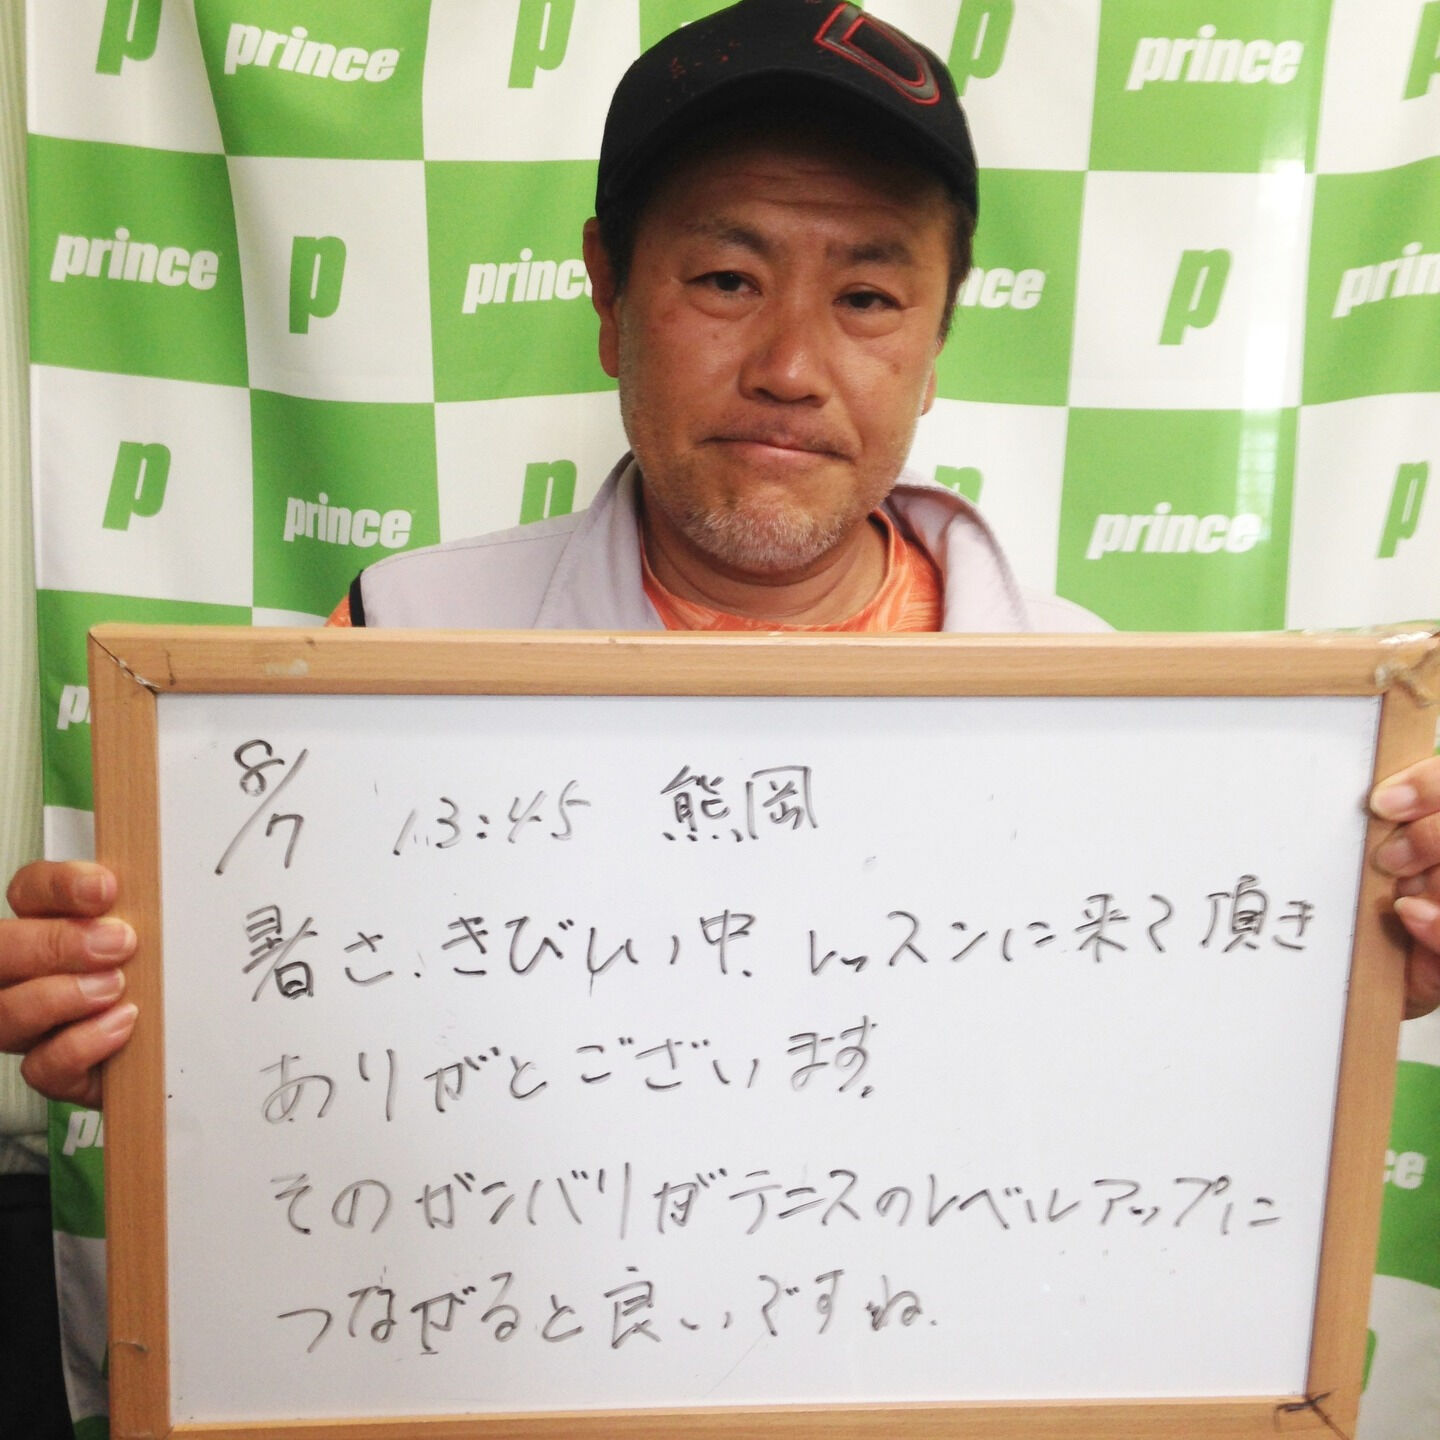 p p p
prince prince
prince p princ nce p prince
p prince p p prince p
pr
8/7 13:45 熊岡
暑さ、きびしい中、レッスンに来て頂き
ありがとございます。
そのガンバリがテニスのレベルアップに
つながると良いですね。
pr ce